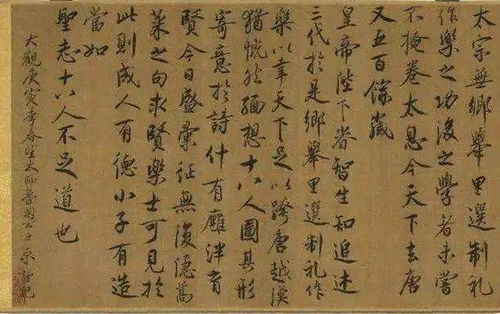 太宗無鄉舉里選制礼
作樂之功後之學者未嘗
不掩卷太息今天下去唐
又五百餘歲
皇帝陛下睿智生知追述
三代於是鄉舉里選制礼作
樂以幸天下足以跨唐越漢
猶慨然緬想十八人圖其形
寄意於詩什有廱泮育
賢今日盛彙征無復隱蒿
萊之句求賢樂士可見於
此則成人有德小子有造
當如
聖志十八人不足道也
大觀庚寅季春望太師魯國公臣京謹記